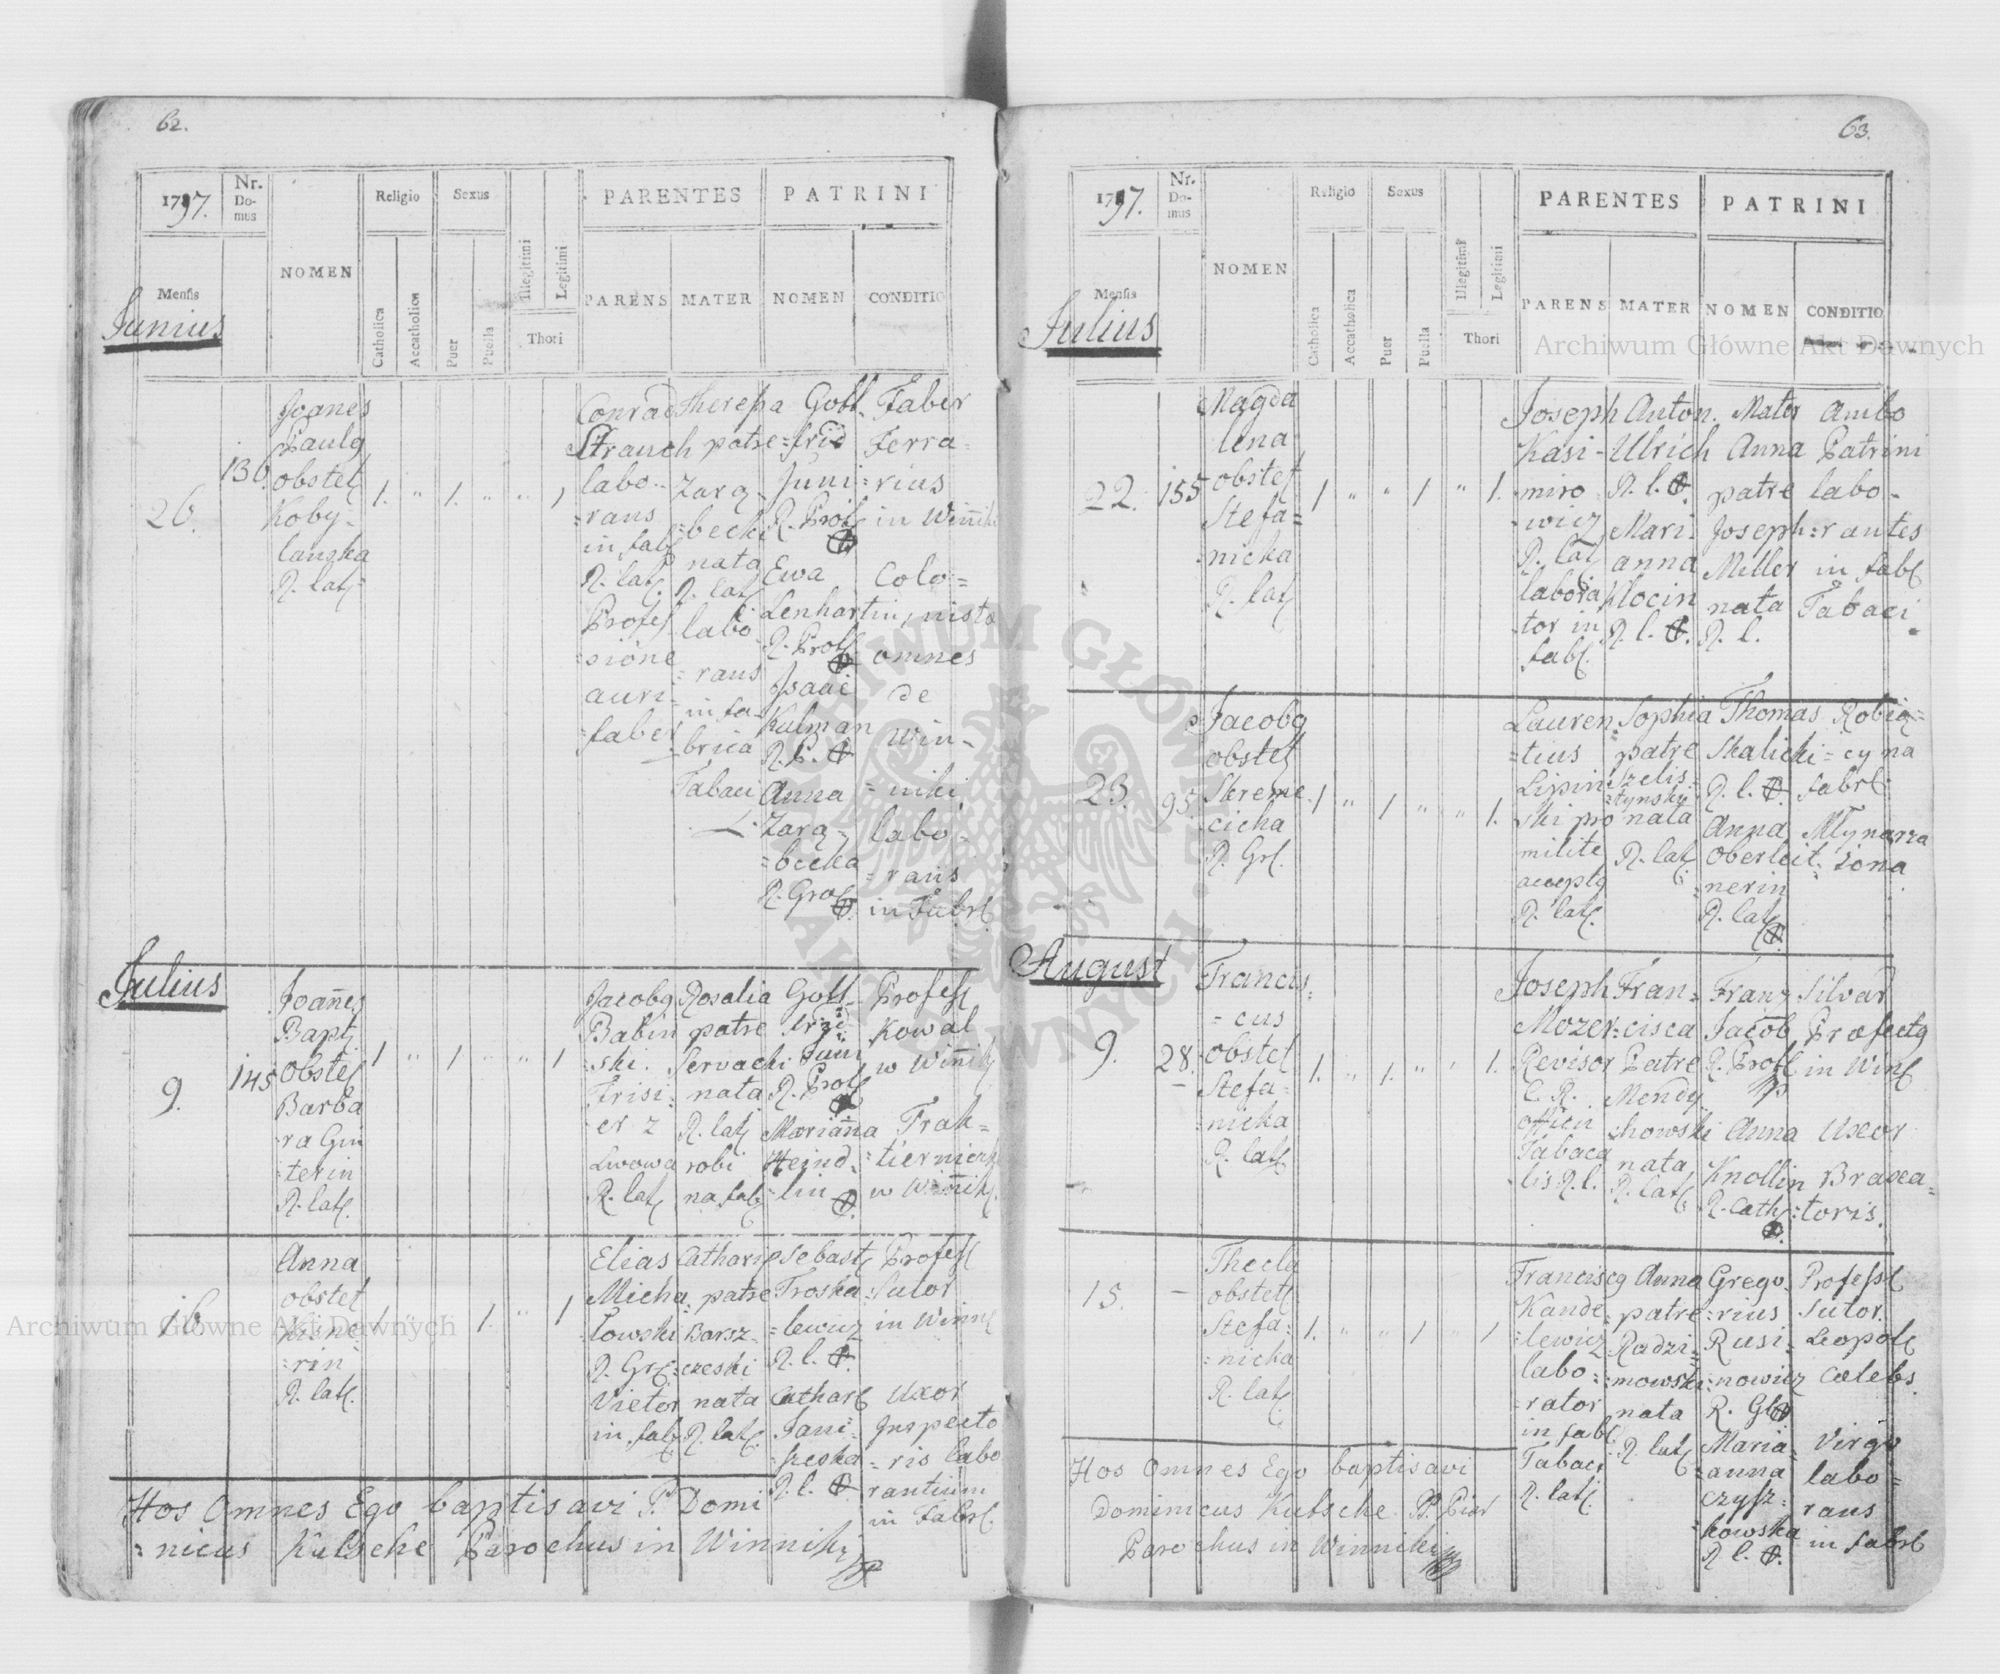 62.
1797.
Nr. Do- mus
NOMEN
Religio
Sexus
PARENTES
PATRINI
Mensis
Catholica
Accatholica
Puer
Puella
Illegitimi
Legitimi
Thori
PARENS
MATER
NOMEN
CONDITIO
Junius
26.
130.
Joanes
Paulq
obstet
Koby-
lanska
R. lat
1. " 1. " " 1
Conrad
Strauch
labo-
=rans
in fab
R. lat.
Profes
=sione
auri-
=faber
Theressa
patre
Zarq
=becki
nata
R. lat
labo
=rans
in fa-
brica
Tabaci
Gott-
=frid
Juni
R. Prot
Ewa
Lenhartin,
R. Prot
Isaac
Kulman
R. P.
Anna
Zarq-
=becka
R. Gra
Faber
Ferra-
rius
in Winnik
Colo=
nista
omnes
de
Win-
=niki
labo-
=rans
in Fabr
Julius
9.
145
Joannes
Bapt
obstet
Barba
ra Gin
terin
R. lat.
1 " 1 " " 1
Jacobq
Babin
=ski.
Frisi
er z
Lwowa
R. lat
Rosalia
patre
Servacki
nata
R. lat
robi
na fab
Gott-
frid
Juni
R. Prot
Marianna
Heind
=lin
Profess
Kowal
w Winnik
Trak-
=tiernick
w Winnik.
16
Anna
obstet
Kisne
=rin
R. lat.
1 " " 1. " 1
Elias
Micha
=lowski
R. Gr.
Vietor
in fab
Catharin
patre
Barsz-
=czeski
nata
R. lat.
Sebast
Troska
=lewicz
R. l.
Cathar
Jani=
szeska
R. l.
Profess
Sutor
in Winn
Uxor
Inspecto
=ris labo
rantium
in Fabr.
Hos Omnes Ego baptisavi P. Domi
=nicus Kutsche Parochus in Winniki
63.
1797.
Nr. Do- mus
NOMEN
Religio
Sexus
PARENTES
PATRINI
Mensis
Catholica
Accatholica
Puer
Puella
Illegitimi
Legitimi
Thori
PARENS
MATER
NOMEN
CONDITIO
Julius
22.
155
Magda
lena
obstet
Stefa=
nicka
R. lat
1 " " 1 " 1.
Joseph
Kasi-
miro
=wicz
R. lat
labora
=tor in
fab.
Anton.
Ulrich
R. l.
Mari
anna
Klocin
R. l.
Mater
Anna
patre
Joseph
Meller
nata
R. l.
Ambo
Patrini
labo-
=rantes
in fab
Tabaci
23.
95.
Jacobq
obstet
Skreme
cicka
R. Gr.
1 " 1 " " 1.
Lauren
=tius
Lipin
ski pro
milite
acceptq
R. lat.
Sophia
patre
Szelis
=tynski
nata
R. lat
Thomas
Skalicki
R. l.
Anna
Oberleit
nerin
R. lat
Robiq=
=cy na
fabr
Mlynarza
żona
August
9.
28.
Francis=
=cus
obstet
Stefa=
nicka
R. lat
1. " 1. " " 1.
Joseph
Mozer
Revisor
C. R.
officii
Tabaca
lis R. l.
Fran=
=cisca
Patre
Mendy
chowski
nata
R. lat
Franz
Jacob
R. Prot
Anna
Knollin
R. Cath
Silvar
Præfectq
in Win
Uxor
Braxea=
=toris.
15.
Thecla
obstet
Stefa=
=nicka
R. lat
1. " " 1 " 1
Franciscq
Kande
=lewicz
labo=
=rator
in fab
Tabaci
R. lat.
Anna
patre
Radzi=
=mowski
nata
R. lat
Grego
=rius
Rusi=
=nowicz
R. Gl
Maria=
=anna
Czysz=
=kowska
R. l.
Profess
Sutor.
Leopol
Cœlebs.
Virgo
labo=
=rans
in fabr
Hos Omnes Ego baptisavi
Dominicus Kutsche P. Piar
Parochus in Winniki
Archiwum Główne Akt Dawnych
Archiwum Główne Akt Dawnych
ARCHIWUM GŁÓWNE AKT DAWNYCH